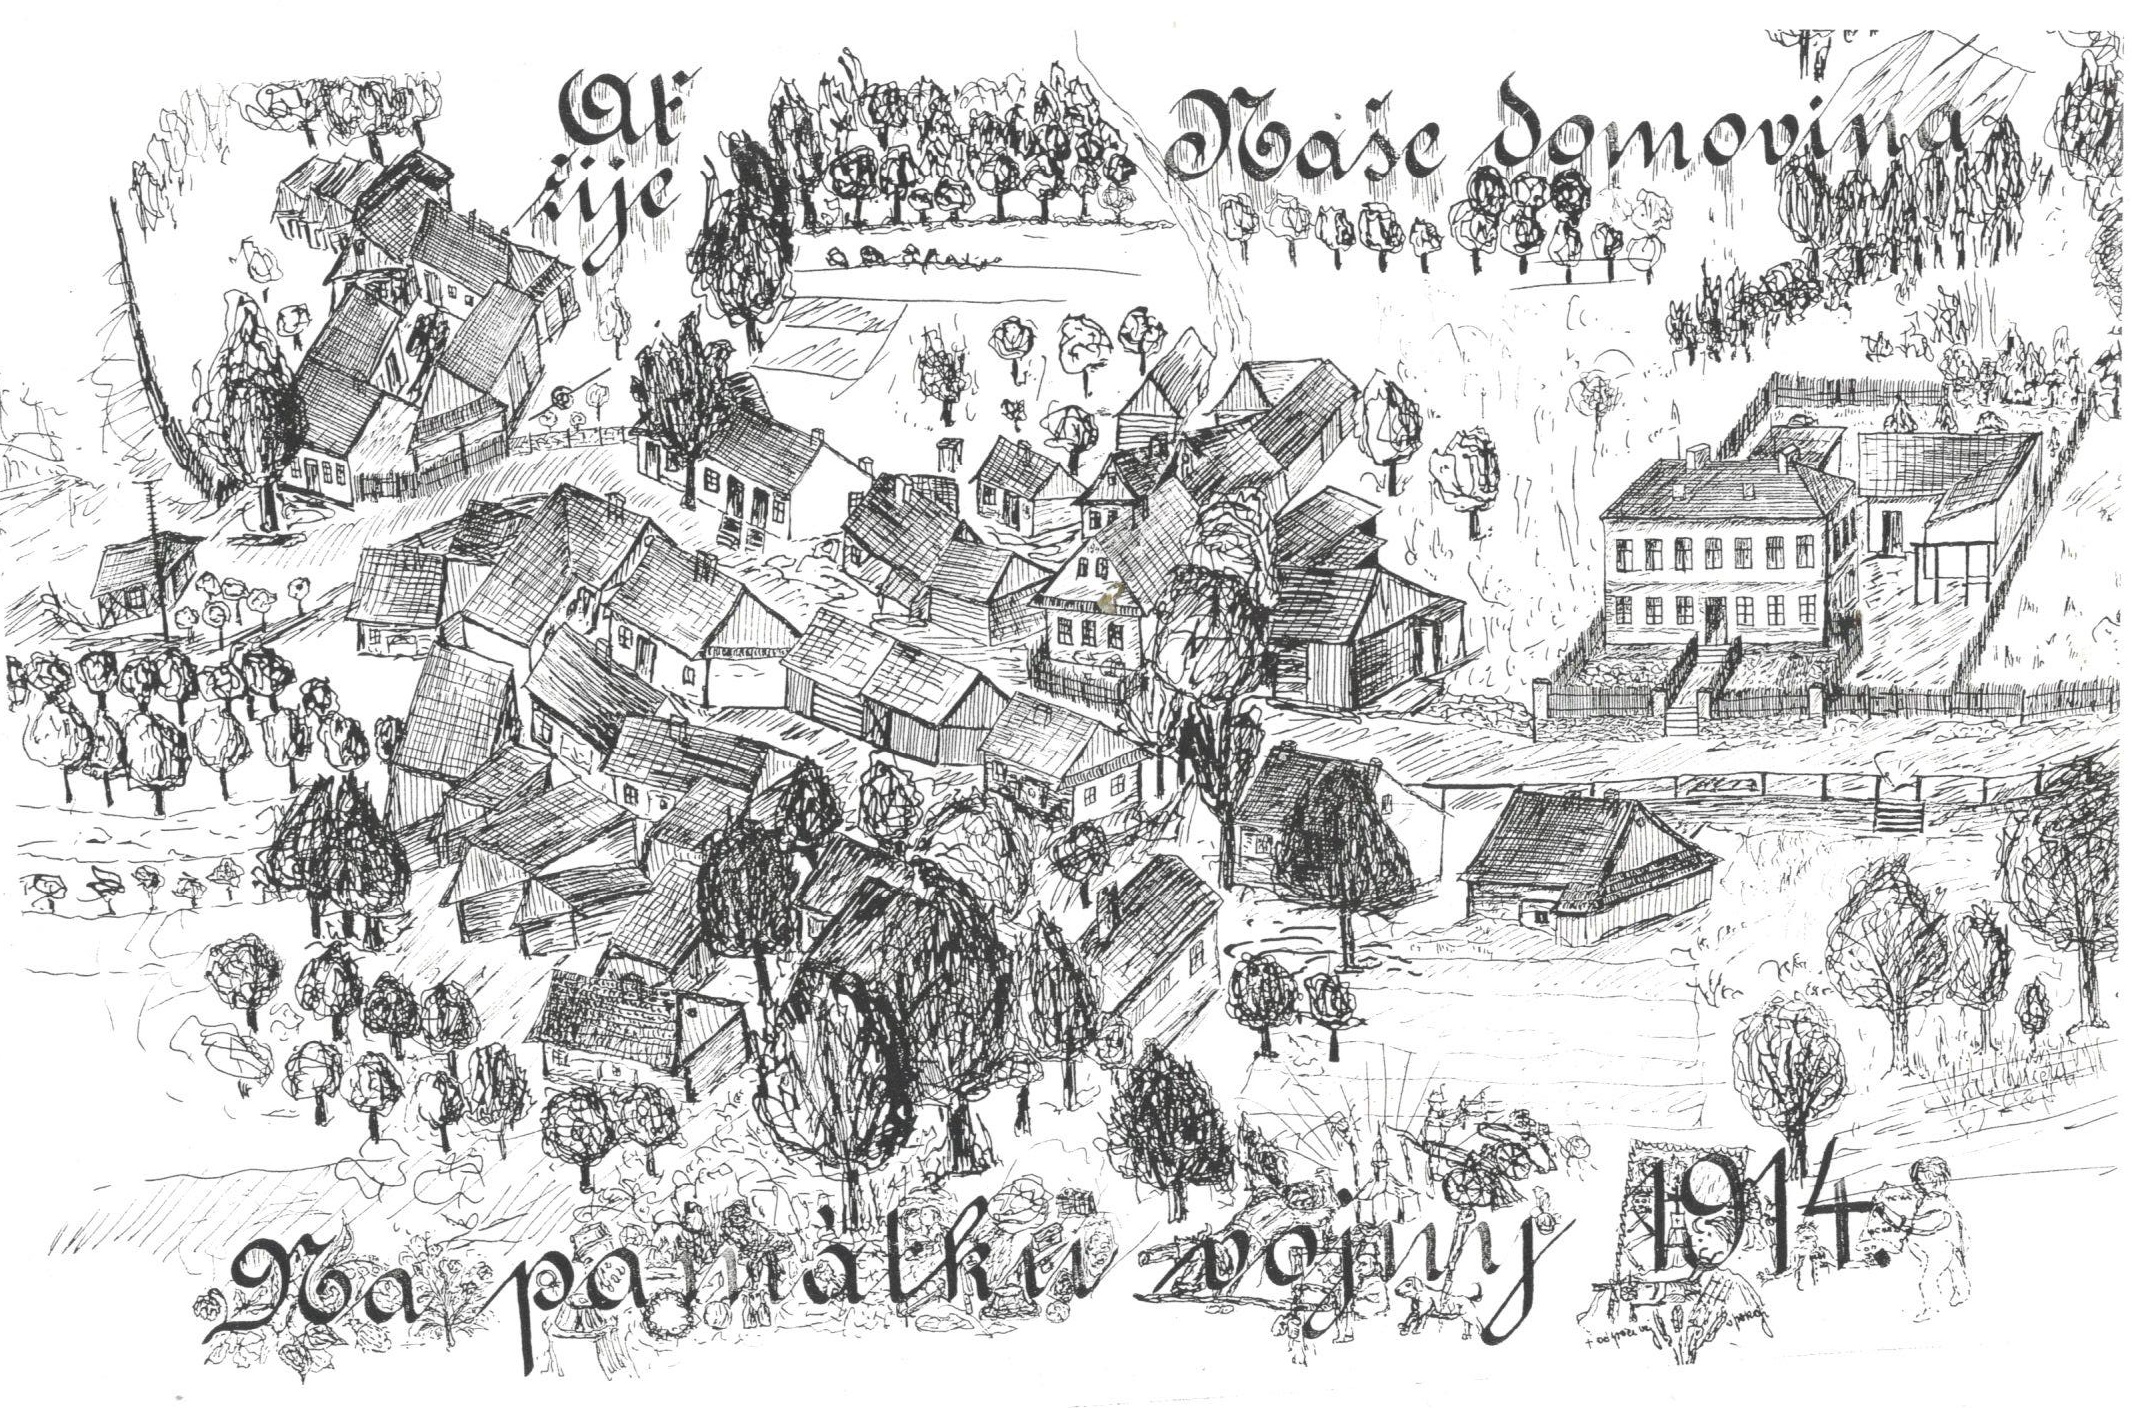 Ať Naše domovina
žije
Na památku vojny 1914.